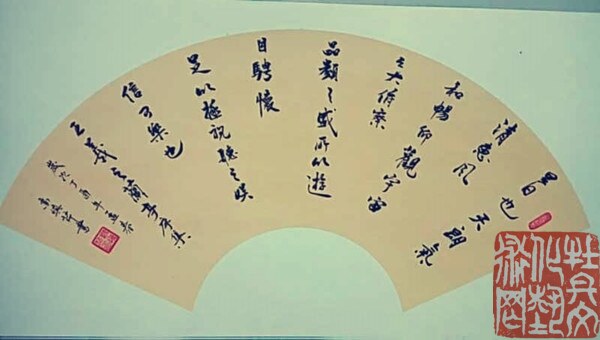 是日也天朗氣
清惠風
和暢仰觀宇宙
之大俯察
品類之盛所以遊
目騁懷
足以極視聽之娛
信可樂也
王羲之蘭亭序
歲次丁酉年孟春
書